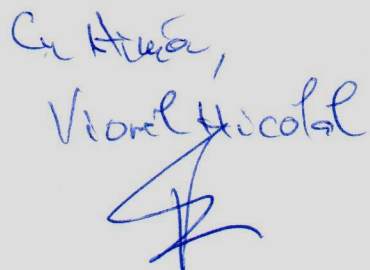 Cu stimă,
Viorel Nicolal